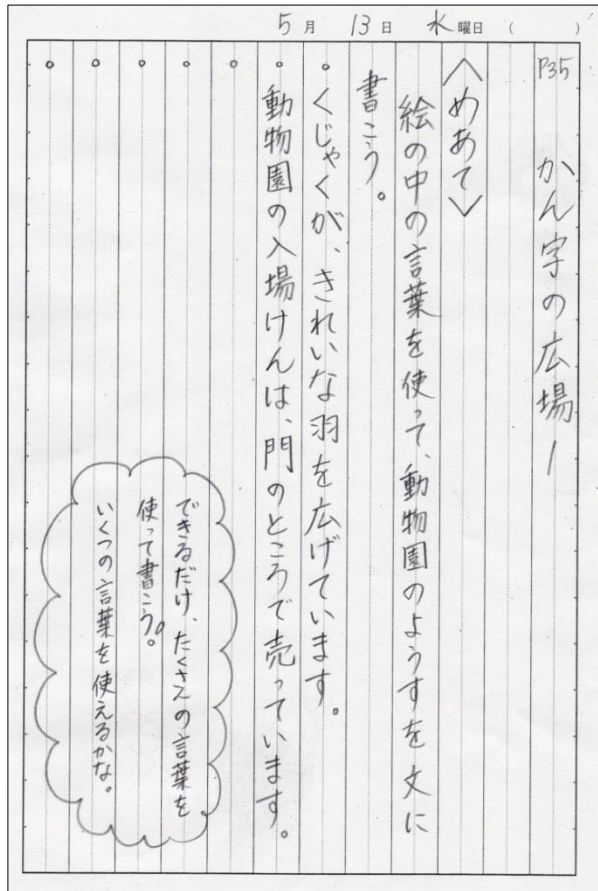 5月13日水曜日（　　）
P35　かん字の広場1
〈めあて〉
絵の中の言葉を使って、動物園のようすを文に
書こう。
・くじゃくが、きれいな羽を広げています。
・動物園の入場けんは、門のところで売っています。
・
・
・
・
・
できるだけ、たくさんの言葉を
使って書こう。
いくつの言葉を使えるかな。